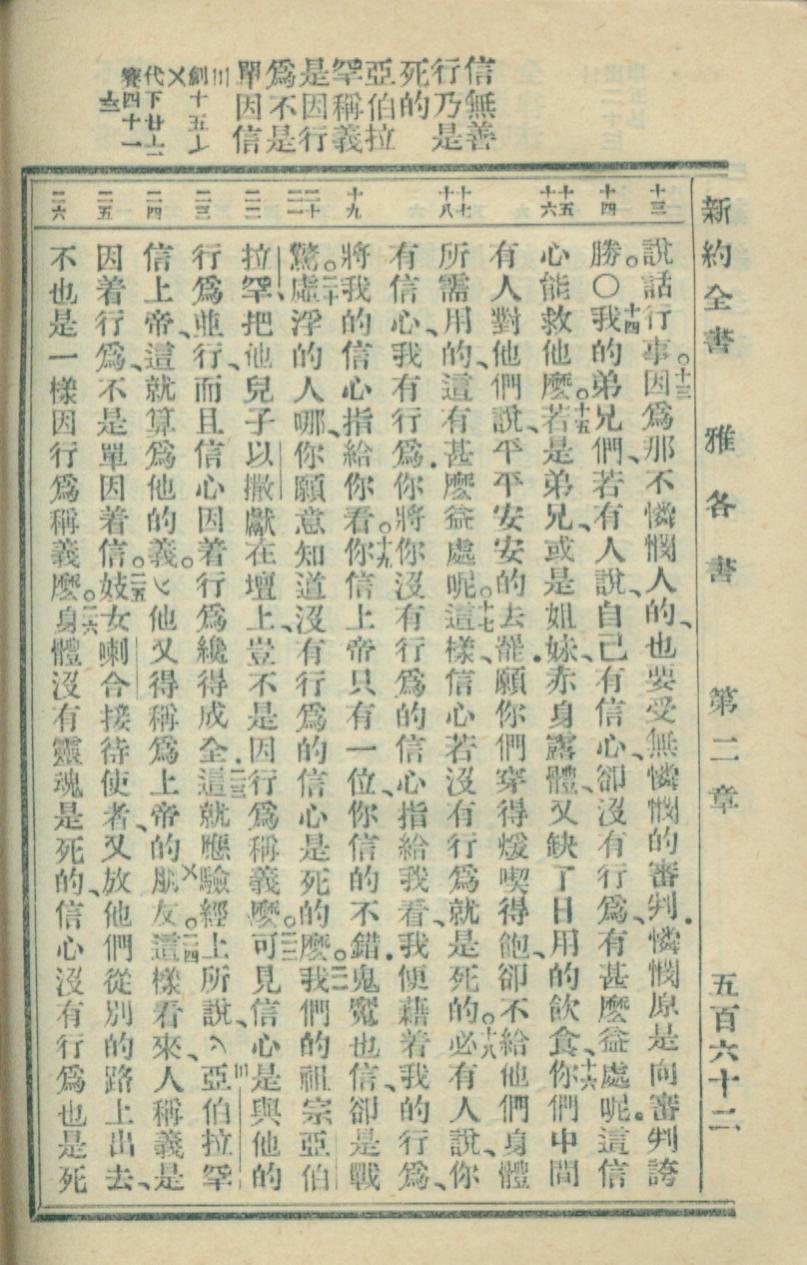 新約全書 雅各書 第二章 五百六十二
信無善
行乃是
死的
亞伯拉
罕稱義
是因行
爲不是
單因信
〣創十五〦
〤代下廿〸
賽四十一
十三
十四
十五
十六
十七
十八
十九
二十
二一
二二
二三
二四
二五
二六
說話行事。十三因爲那不憐憫人的、也要受無憐憫的審判.憐憫原是向審判誇
勝。〇十四我的弟兄們、若有人說、自己有信心、卻沒有行爲、有甚麽益處呢。這信
心能救他麽。十五若是弟兄、或是姐妹、赤身露體、又缺了日用的飲食、十六你們中間
有人對他們說、平平安安的去罷.願你們穿得煖喫得飽、卻不給他們身體
所需用的、這有甚麽益處呢。十七這樣、信心若沒有行爲就是死的。十八必有人說、你
有信心、我有行爲.你將你沒有行爲的信心指給我看、我便藉着我的行爲、
將我的信心指給你看。十九你信上帝只有一位、你信的不錯.鬼魔也信、卻是戰
驚。二十虛浮的人哪、你願意知道沒有行爲的信心是死的麽。二一我們的祖宗亞伯
拉罕、把他兒子以撒獻在壇上、豈不是因行爲稱義麽。二二可見信心是與他的
行爲並行、而且信心因着行爲纔得成全.二三這就應驗經上所說、〣亞伯拉罕
信上帝、這就算爲他的義。他又得稱爲上帝的〤朋友。二四這樣看來、人稱義是
因着行爲、不是單因着信。二五妓女喇合接待使者、又放他們從別的路上出去、
不也是一樣因行爲稱義麽。二六身體沒有靈魂是死的、信心沒有行爲也是死